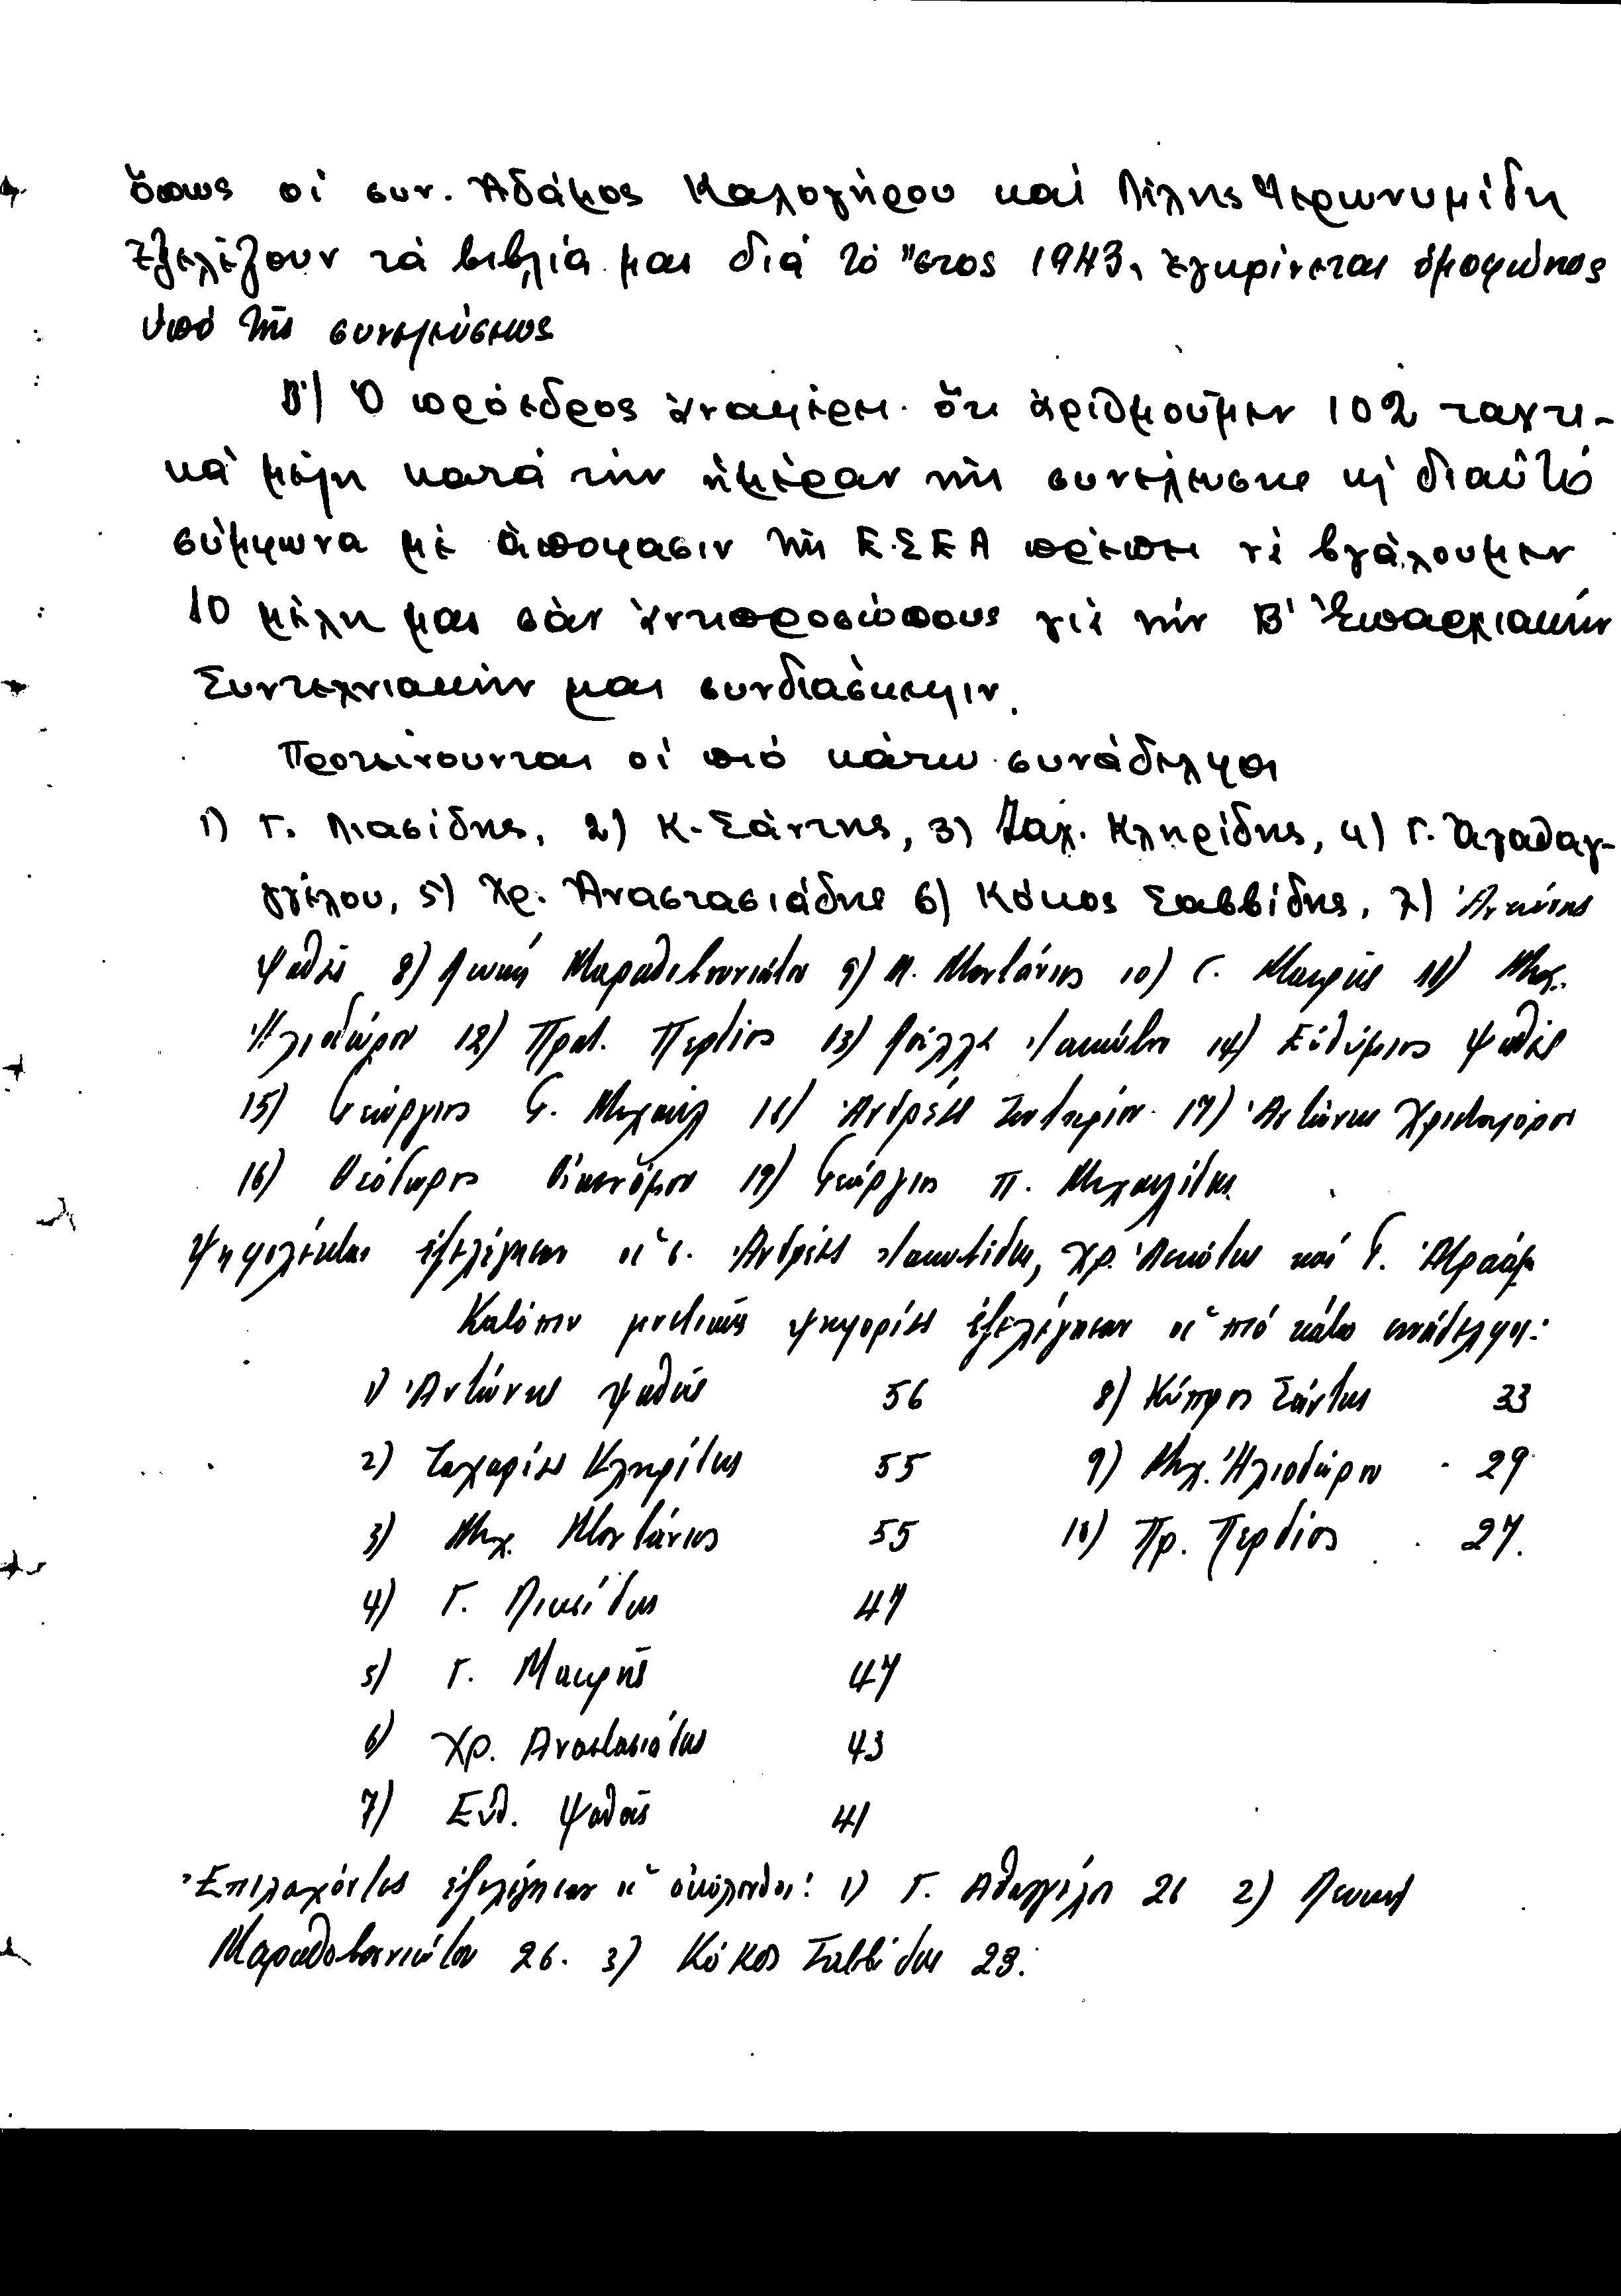 ὅπως οἱ συν. Ἀδάμος Καλογήρου καί Λίλης Ἱερωνυμίδη
ἐξελέξουν τά βιβλία μας διά τό ἔτος 1943, ἐγκρίνεται ὁμοφώνως
ὑπό τῆς συνελεύσεως
Β΄) Ὁ πρόεδρος ἀναφέρει ὅτι ἀριθμοῦμεν 102 τακτι-
κά μέλη κατά τήν ἡμέραν τῆς συνελεύσης κι' διαὐτό
σύμφωνα μέ ἀποφασιν τῆς Ε.Σ.Ε.Α πρέπει νά βγάλουμεν
10 μέλη μας σάν ἀντιπροσώπους γιά τήν Β' Ἐπαρχιακήν
Συντεχνιακήν μας συνδιάσκεψιν.
Προτείνουνται οἱ πιό κάτω συνάδελφοι
1) Γ. Λιασίδης, 2) Κ. Σάντης, 3) Ζαχ. Κληρίδης, 4) Γ. Ἀγαθαγ-
γγέλου, 5) Χρ. Ἀναστασιάδης 6) Κόκος Σαββίδης, 7) Ἀντώνης
Ψαθάς 8) Λευκή Μαραθοβουνιώτου 9) Μ. Μοντάνιος 10) Γ. Μακρής 11) Μιχ.
Ἡλιοδώρου 12) Πραξ. Περδίος 13) Λούλλα Ἰακώβου 14) Εὐθύμιος Ψαθάς
15) Γεώργιος Γ. Μιχαήλ 16) Ἀνδρέας Σωτηρίου 17) Ἀντώνης Χριστοφόρου
18) Θεόδωρος Οἰκονόμου 19) Γεώργιος Π. Μιχαηλίδης
Ψηφολέκται ἐξελέγησαν οἱ σ. Ἀνδρέας Ἰακωβίδης, Χρ. Λευκότης καί Γ. Ἀβραάμ
Κατόπιν μυστικῆς ψηφορίας ἐξελέγησαν οἱ πιό κάτω συνάδελφοι:
1) Ἀντώνης Ψαθάς 56 8) Κύπρος Σάντης 33
2) Ζαχαρίας Κληρίδης 55 9) Μιχ. Ἡλιοδώρου 29
3) Μιχ. Μοντάνιος 55 10) Πρ. Περδίος 27.
4) Γ. Λιασίδης 47
5) Γ. Μακρής 47
6) Χρ. Αναστασιάδης 43
7) Εὐθ. Ψαθάς 41
Ἐπιλαχόντες ἐξελέγησαν οἱ ἀκόλουθοι: 1) Γ. Αθαγγέλου 26 2) Λευκή
Μαραθοβουνιώτου 26. 3) Κόκος Σαββίδης 23.